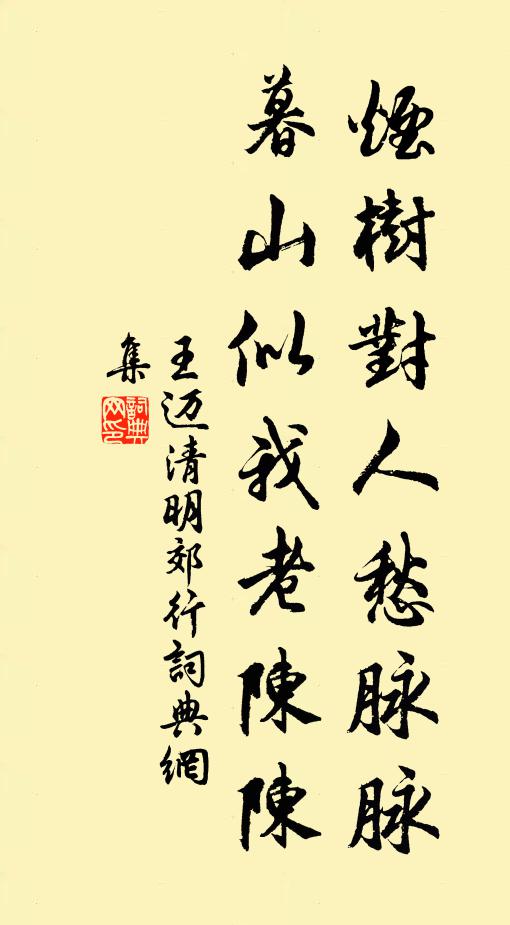 煙樹對人愁脉脉
暮山似我老陳陳
王迈清明郊行詞典網
集
詞典网印